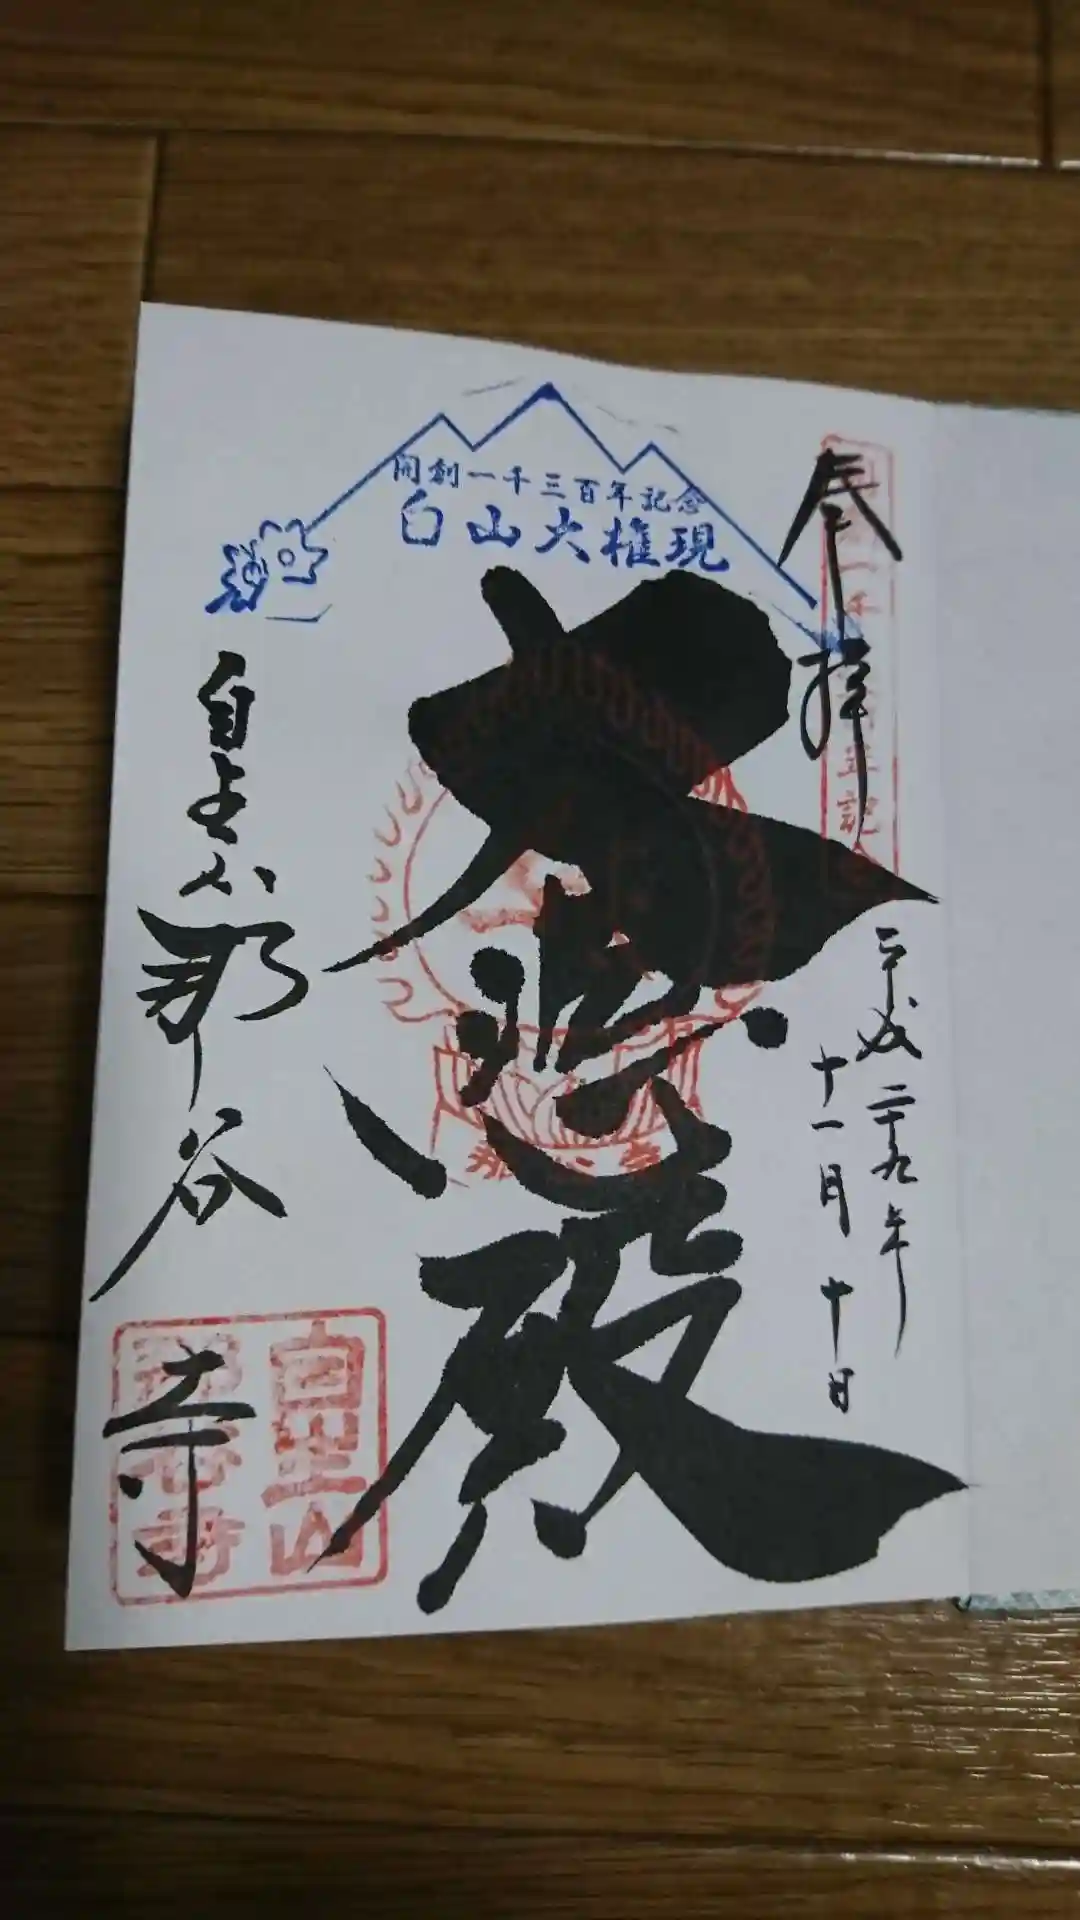 開創一千三百年記念
白山大権現
奉拝
平成二十九年
十一月十日
大悲殿
自生山
那谷寺
那谷寺
自生山
那谷寺